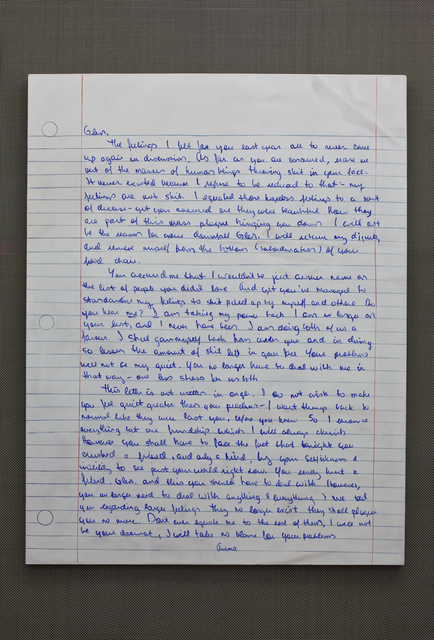 Glen.
The feelings I felt for you last year are to never come
up again in discussion. As far as you are concerned, erase me
out of the masses of human beings throwing shit in your face.
It never existed because I refuse to be reduced to that - my
feelings are not shit. I equated those hopeless feelings to a sort
of disease - yet you assured me they were beautiful. Now they
are part of this mass plague bringing you down. I will not
be the reason for more downfall Glen. I will return my dignity,
and remove myself from the bottom of your
food chain.
You assured me that I wouldn't be just another name on
the list of people you didn't love. And yet you've managed to
my feelings to shit piled up by myself and others. Do
you hear me? I am taking my power back. I am no longer on
your list, and I never have been. I am doing both of us a
favour. I shall myself back from under you and in doing
so lessen the amount of shit left in your life. Your problems
will not be my guilt. You no longer have to deal with me in
that way - one less stress for us both.
This letter is not written in anger. I do not wish to make
you feel guilt greater than your - I want things back to
normal like they were last year, before you knew. So I
everything but our friendship which I will always cherish.
However you shall have to face the fact that tonight you
crushed a friend, and only a friend, by your selfishness &
inability to see past your world right now. You really hurt a
friend, Glen, and this you should have to deal with. However,
you no longer need to deal with anything & everything I've told
you regarding larger feelings. They no longer exist. They shall plague
you no more. Don't ever equate me to the rest of them, I will not
be your doormat, I will take no blame for your problems.